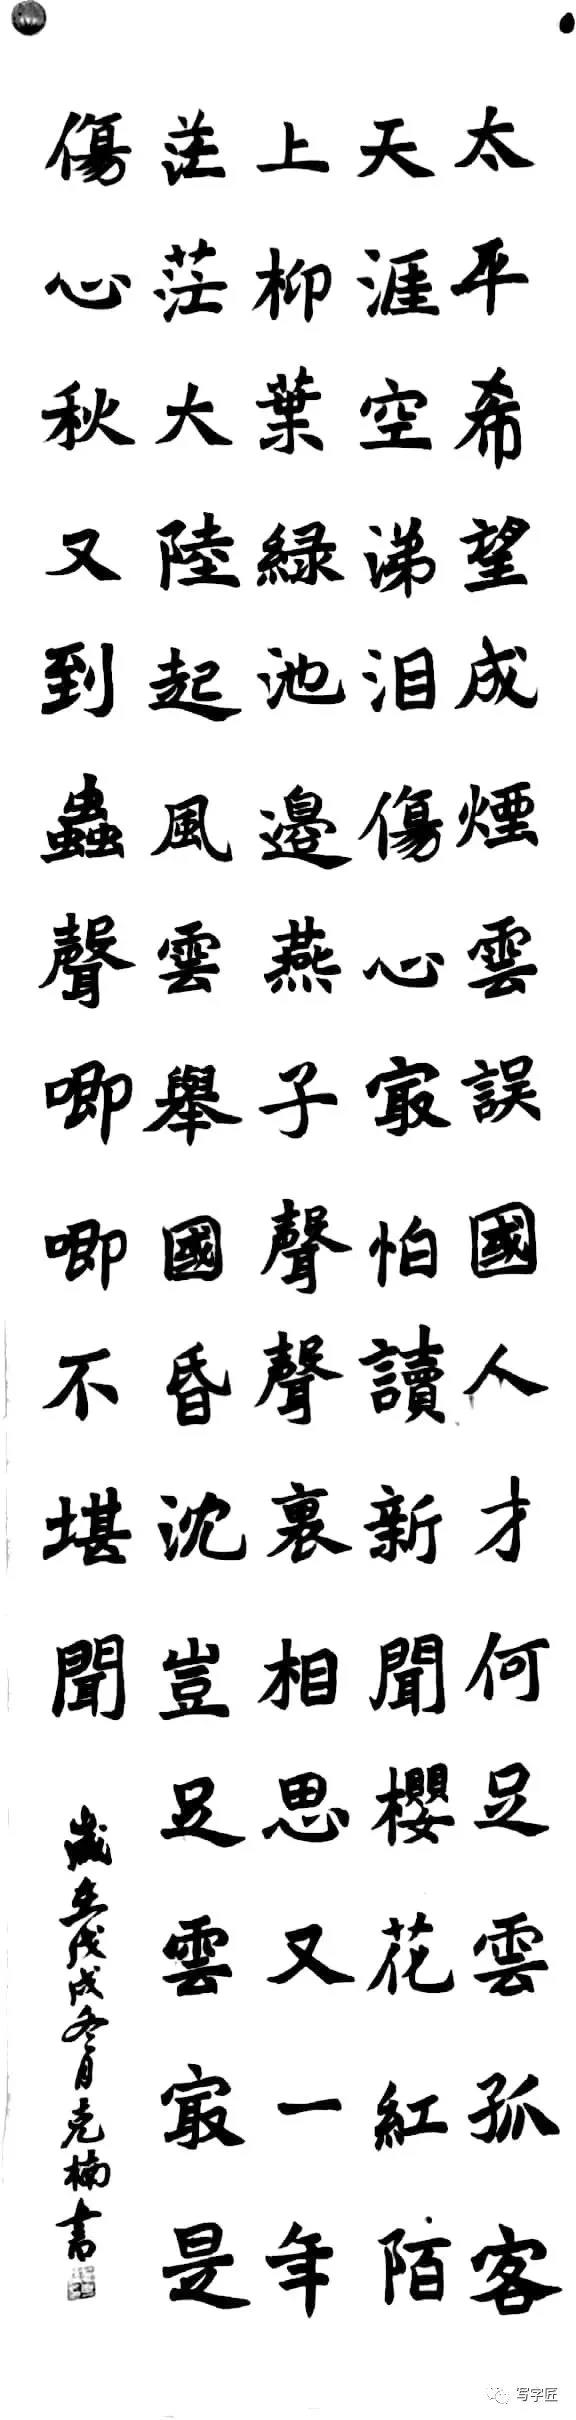 太平希望成煙雲誤國人才何足雲孤客
天涯空涕泪傷心㝡怕讀新聞櫻花紅陌
上柳葉緑池邊燕子聲聲裏相思又一年
茫茫大陸起風雲舉國昏沈豈足雲㝡是
傷心秋又到蟲聲唧唧不堪聞
歲在戊戌冬月克楠書
写字匠